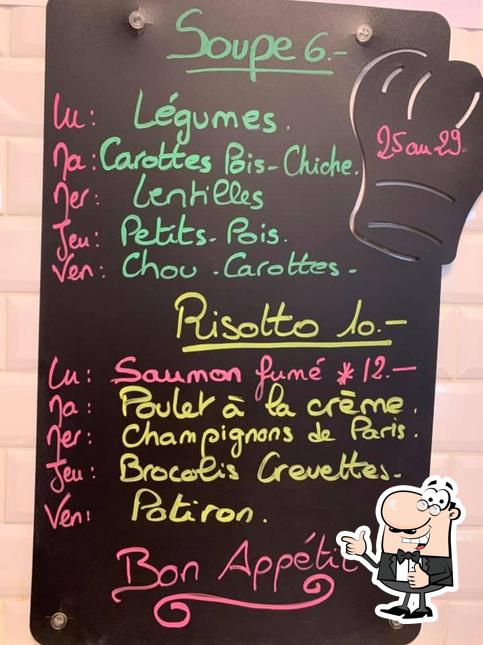 Soupe 6.-
25 au 29.
Lu: Légumes.
Ma: Carottes Pois-Chiche.
Mer: Lentilles
Jeu: Petits-Pois.
Ven: Chou-Carottes-
Risotto 10.-
Lu: Saumon fumé * 12.-
Ma: Poulet à la crème.
Mer: Champignons de Paris.
Jeu: Brocolis Crevettes-
Ven: Potiron.
Bon Appétit